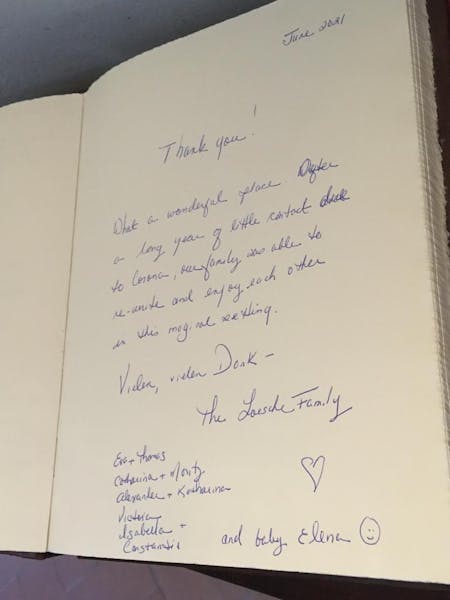 June 2021
Thank you!
What a wonderful place. After
a long year of little contact due
to Corona, our family was able to
re-unite and enjoy each other
in this magical setting.
Vielen, vielen Dank –
The Loesche Family
Eva + Thomas
Catharina + Moritz
Alexander + Katharina
Victoria
Isabella +
Constantin
♡
and baby Elena ☺